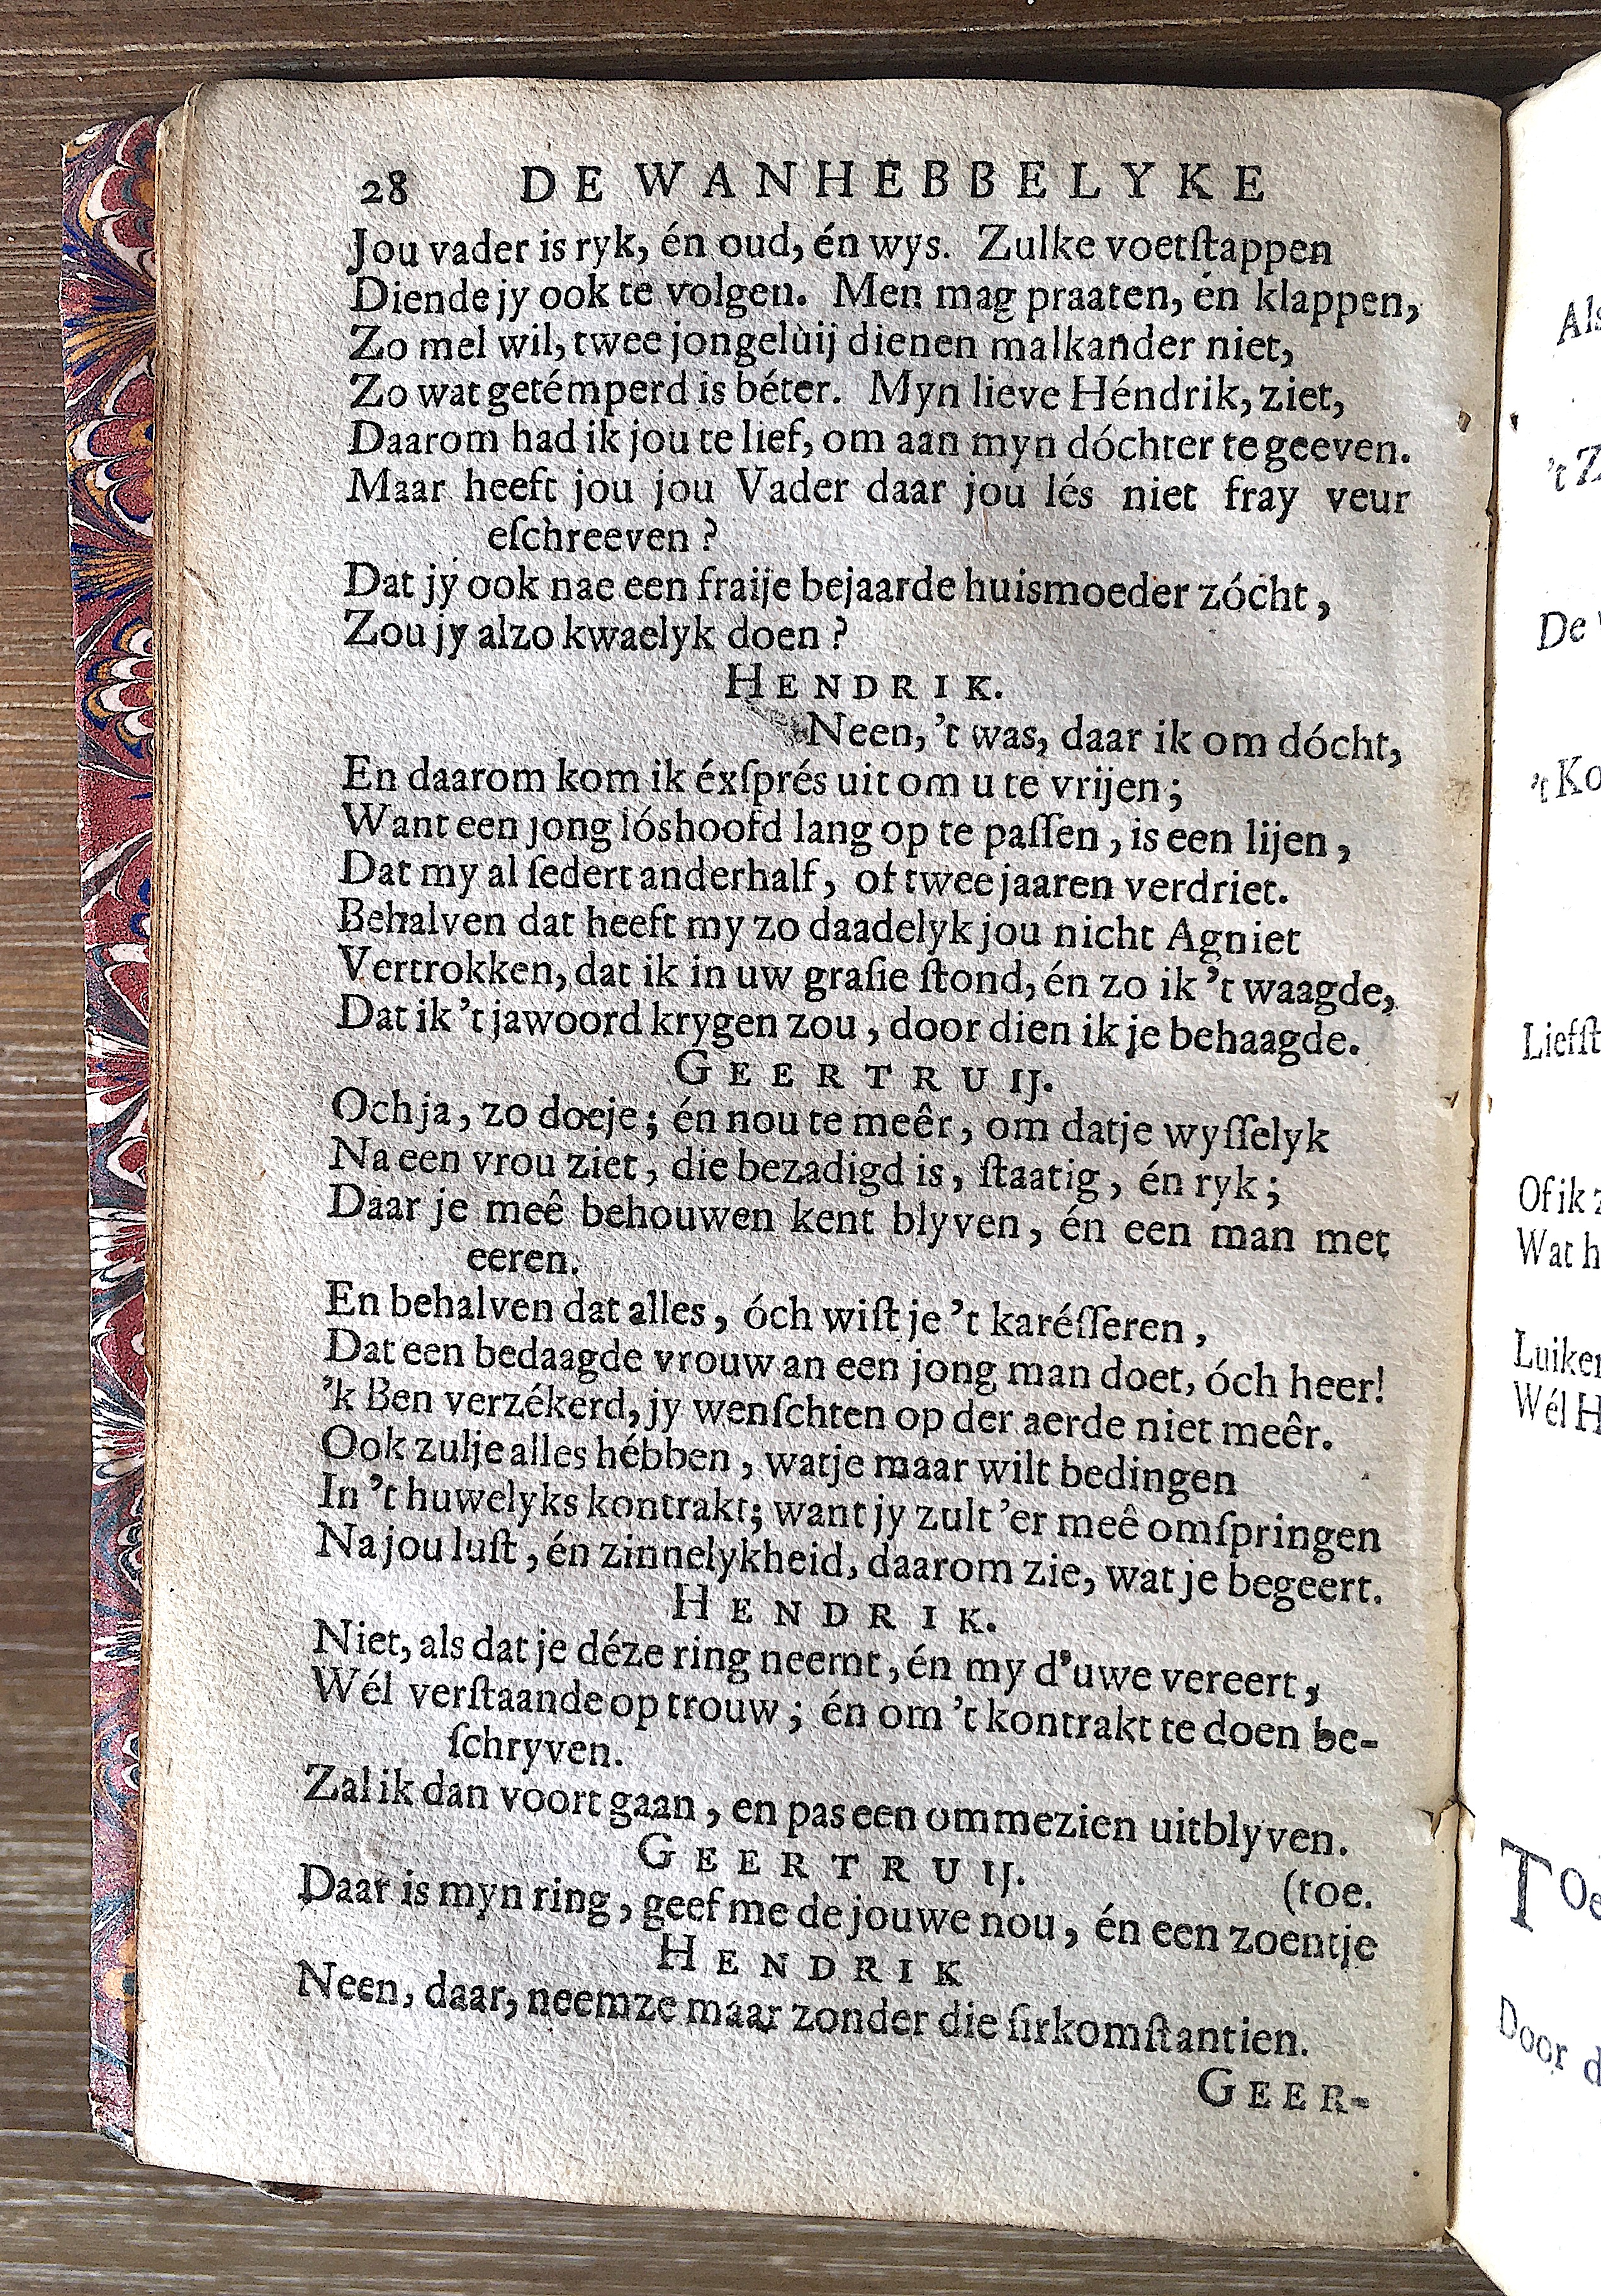 28 DE WANHEBBELYKE
Jou vader is ryk, én oud, én wys. Zulke voetſtappen
Diende jy ook te volgen. Men mag praaten, én klappen,
Zo mel wil, twee jongeluij dienen malkander niet,
Zo wat getémperd is béter. Myn lieve Héndrik, ziet,
Daarom had ik jou te lief, om aan myn dóchter te geeven.
Maar heeft jou jou Vader daar jou lés niet fray veur
eſchreeven?
Dat jy ook nae een fraije bejaarde huismoeder zócht,
Zou jy alzo kwaelyk doen?
HENDRIK.
Neen, 't was, daar ik om dócht,
En daarom kom ik éxſprés uit om u te vrijen;
Want een jong lóshoofd lang op te paſſen, is een lijen,
Dat my al ſedert anderhalf, of twee jaaren verdriet.
Behalven dat heeft my zo daadelyk jou nicht Agniet
Vertrokken, dat ik in uw graſie ſtond, én zo ik 't waagde,
Dat ik 't jawoord krygen zou, door dien ik je behaagde.
GEERTRUIJ.
Och ja, zo doeje; én nou te meêr, om datje wyſſelyk
Na een vrou ziet, die bezadigd is, ſtaatig, én ryk;
Daar je meê behouwen kent blyven, én een man met
eeren.
En behalven dat alles, óch wiſt je 't karéſſeren,
Dat een bedaagde vrouw an een jong man doet, óch heer!
'k Ben verzékerd, jy wenſchten op der aerde niet meêr.
Ook zulje alles hébben, watje maar wilt bedingen
In 't huwelyks kontrakt; want jy zult 'er meê omſpringen
Na jou luſt, én zinnelykheid, daarom zie, wat je begeert.
HENDRIK.
Niet, als dat je déze ring neemt, én my d'uwe vereert,
Wél verſtaande op trouw; én om 't kontrakt te doen be-
ſchryven.
Zal ik dan voort gaan, en pas een ommezien uitblyven.
GEERTRUIJ. (toe.
Daar is myn ring, geef me de jouwe nou, én een zoentje
HENDRIK
Neen, daar, neemze maar zonder die ſirkomſtantien.
GEER-
Als
't Z
De
't Ko
Liefſt
Of ik z
Wat h
Luiker
Wél H
TOe
Door d